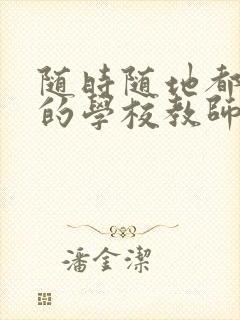 随時随地都
的學校教師
潘金潔